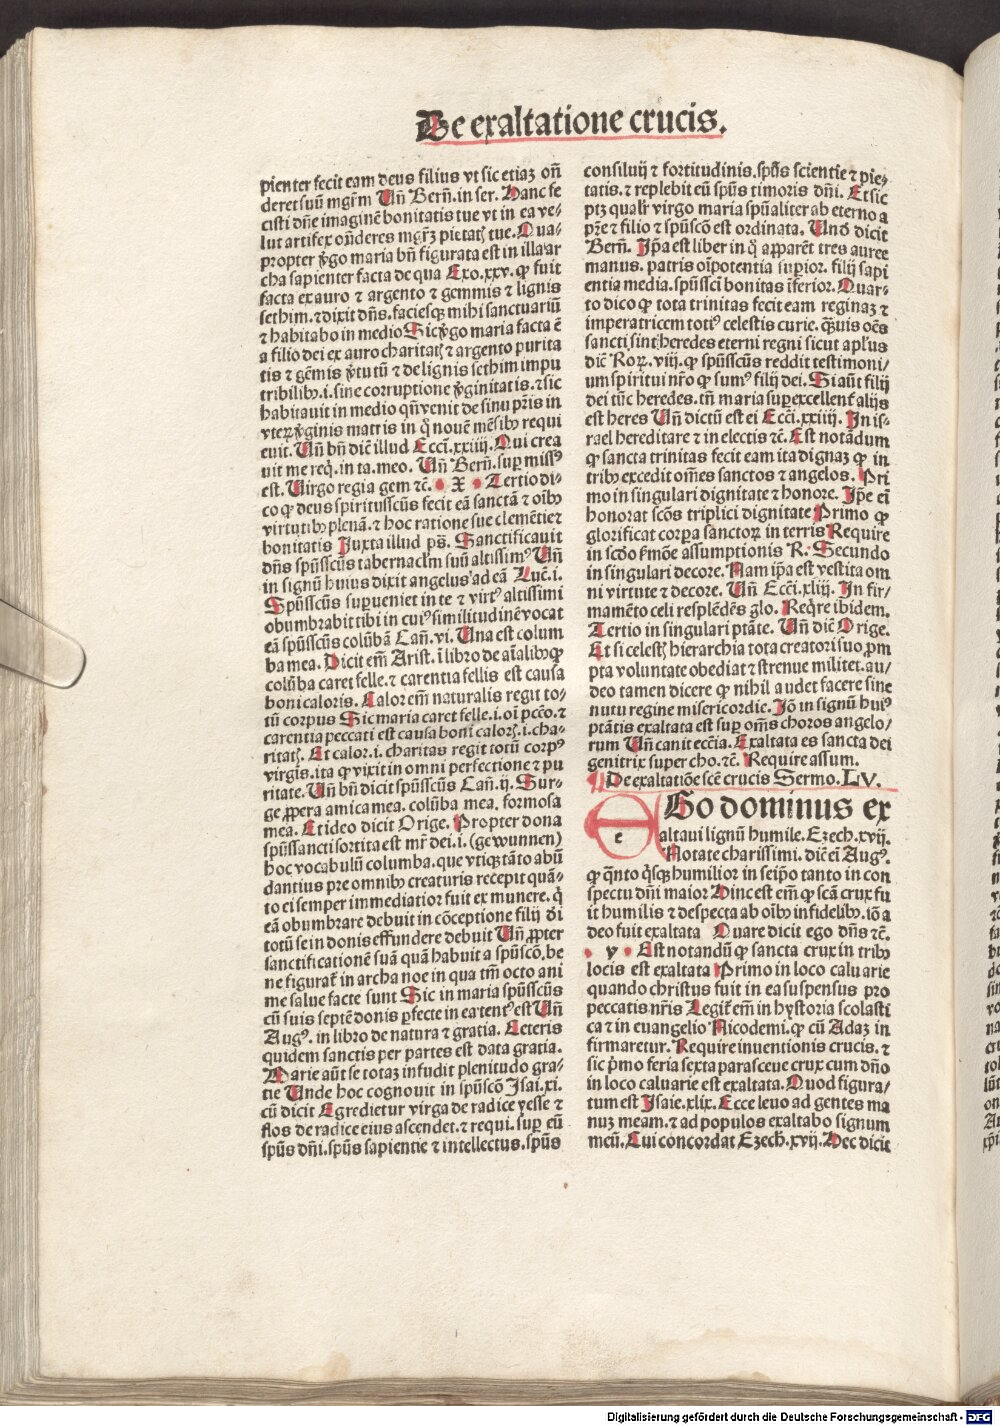 De exaltatione crucis.
pienter fecit eam deus filius vt sic etiaꝫ oñ
deret suū mgr̄m Uñ Berñ. in ser. Hanc fe
cisti dn̄e imaginē bonitatis tue vt in ea ve⸗
lut artifex on̄deres mgr̄ꝫ pietatꝭ tue. Qua⸗
propter v̓go maria bn̄ figurata est in illa ar
cha sapienter facta de qua Exo. xxv. ꝙ fuit
facta ex auro ⁊ argento ⁊ gemmis ⁊ lignis
sethim. ⁊ dixit dn̄s. faciesqꝫ mihi sanctuariū
⁊ habitabo in medio Sic v̓go maria facta ē
a filio dei ex auro charitatꝭ ⁊ argento purita
tis ⁊ gēmis v̓tutū ⁊ de lignis sethim impu
tribilibꝰ .i. sine corruptione v̓ginitatis. ⁊ sic
habitauit in medio qn̄ venit de sinu pr̄is in
vterꝫ v̓ginis matris in q̊ nouē mēsibꝰ requi
euit. Uñ bn̄ dic̄ illud Ecci. xxiiii. Qui crea
uit me req̇. in ta. meo. Uñ Berñ. suꝑ missꝰ
est. Uirgo regia gem ⁊c̄. • X • Tertio di⸗
co ꝙ deus spiritusscūs fecit eā sanctā ⁊ oībꝰ
virtutibꝰ plenā. ⁊ hoc ratione sue clemētie ⁊
bonitatis Juxta illud ps̄. Sanctificauit
dn̄s spūsscūs tabernacl̓m suū altissimꝰ Uñ
in signū huius dixit angelus ad eā Luc̄. i.
Spūsscūs superueniet in te ⁊ virtꝰ altissimi
obumbrabit tibi in cuiꝰ similitudinē vocat
eā spūsscūs colūbā Cañ. vi. Una est colum
ba mea. Dicit em̄ Arist. ī libro de aīalibꝰ ꝙ
colūba caret felle. ⁊ carentia fellis est causa
boni caloris. Calor em̄ naturalis regit to⸗
tū corpus Sic maria caret felle .i. oī pcc̄o. ⁊
carentia peccati est causa boni calorꝭ .i. cha⸗
ritatꝭ. Et calor .i. charitas regit totū corpꝰ
virgis. ita ꝙ vixit in omni perfectione ⁊ pu
ritate. Uñ bn̄ dicit spūsscūs Cañ. ij. Sur⸗
ge ꝓpera amica mea. colūba mea. formosa
mea. Et ideo dicit Orige. Propter dona
spūssancti sortita est mr̄ dei .i. (gewunnen)
hoc vocabulū columba. que vtiqꝫ tāto abū
dantius pre omnibꝰ creaturis recepit quā⸗
to ei semper immediatior fuit ex munere. q̇
eā obumbrare debuit in cōceptione filij dī
totū se in donis effundere debuit Uñ ꝓpter
sanctificationē suā quā habuit a spūscō. be
ne figurat̄ in archa noe in qua tm̄ octo ani
me salue facte sunt Sic in maria spūsscūs
cū suis septē donis ꝑfecte in ea tentꝰ est Uñ
Augꝰ. in libro de natura ⁊ gratia. Ceteris
quidem sanctis per partes est data gratia.
Marie aūt se totaꝫ infudit plenitudo gra⸗
tie Unde hoc cognouit in spūscō Isai. xi.
cū dicit Egredietur virga de radice yesse ⁊
flos de radice eius ascendet. ⁊ requi. suꝑ eū
spūs dn̄i. spūs sapientie ⁊ intellectus. spūs
consilij ⁊ fortitudinis. spūs scientie ⁊ pie⸗
tatis. ⁊ replebit eū spūs timoris dn̄i. Et sic
ptꝫ qualr̄ virgo maria spūaliter ab eterno a
pr̄e ⁊ filio ⁊ spūscō est ordinata. Un̄ dicit
Berñ. Ip̄a est liber in q̊ apparēt tres auree
manus. patris oīpotentia suꝑior. filij sapi
entia media. spūssci bonitas īferior. Quar⸗
to dico ꝙ tota trinitas fecit eam reginaꝫ ⁊
imperatricem totiꝰ celestis curie. q̄uis oēs
sancti sint heredes eterni regni sicut apl̓us
dic̄ Roꝝ. viij. ꝙ spūsscus reddit testimoni⸗
um spiritui nr̄o ꝙ sumꝰ filij dei. Si aūt filij
dei tūc heredes. tn̄ maria suꝑexcellent̓ alijs
est heres Uñ dictū est ei Ecci. xxiiij. In is⸗
rael hereditare ⁊ in electis ⁊c̄. Est notādum
ꝙ sancta trinitas fecit eam ita dignaꝫ ꝙ in
tribꝰ excedit om̄es sanctos ⁊ angelos. Pri
mo in singulari dignitate ⁊ honore. Ip̄e ei̅
honorat scōs triplici dignitate Primo ꝙ
glorificat corꝑa sanctoꝝ in terris Require
in scd̄o ẜmōe assumptionis R. Secundo
in singulari decore. Nam ip̄a est vestita om
ni virtute ⁊ decore. Uñ Ecci. xliij. In fir⸗
mamēto celi resplēdēs glo. Req̇re ibidem.
Tertio in singulari ptāte. Uñ dic̄ Orige.
Et si celestꝭ hierarchia tota creatori suo ꝓm
pta voluntate obediat ⁊ strenue militet. au⸗
deo tamen dicere ꝙ nihil audet facere sine
nutu regine misericordie. Jō in signū huiꝰ
ptātis exaltata est suꝑ om̄s choros angelo⸗
rum Uñ canit ecc̄ia. Exaltata es sancta dei
genitrix super cho. ⁊c̄. Require assum.
¶ De exaltatiōe scē crucis Sermo. LV.
e
Go dominus ex
altaui lignū humile. Ezech. xvij.
Notate charissimi. dic̄ ei Augꝰ.
ꝙ q̄nto q̇sqꝫ humilior in seip̄o tanto in con
spectu dn̄i maior Hinc est em̄ ꝙ scā crux fu
it humilis ⁊ despecta ab oībꝰ infidelibꝰ. iō a
deo fuit exaltata Quare dicit ego dn̄s ⁊c̄.
• y • Est notandū ꝙ sancta crux in tribꝰ
locis est exaltata Primo in loco caluarie
quando christus fuit in ea suspensus pro
peccatis nr̄is Legit̓ em̄ in hystoria scolasti
ca ⁊ in euangelio Nicodemi. ꝙ cū Adaꝫ in
firmaretur. Require inuentionis crucis. ⁊
sic p̓mo feria sexta parasceue crux cum dn̄o
in loco caluarie est exaltata. Quod figura⸗
tum est Isaie. xlix. Ecce leuo ad gentes ma
nuꝫ meam. ⁊ ad populos exaltabo signum
meū. Cui concordat Ezech. xvij. Hec dicit
Digitalisierung gefördert durch die Deutsche Forschungsgemeinschaft - DFG